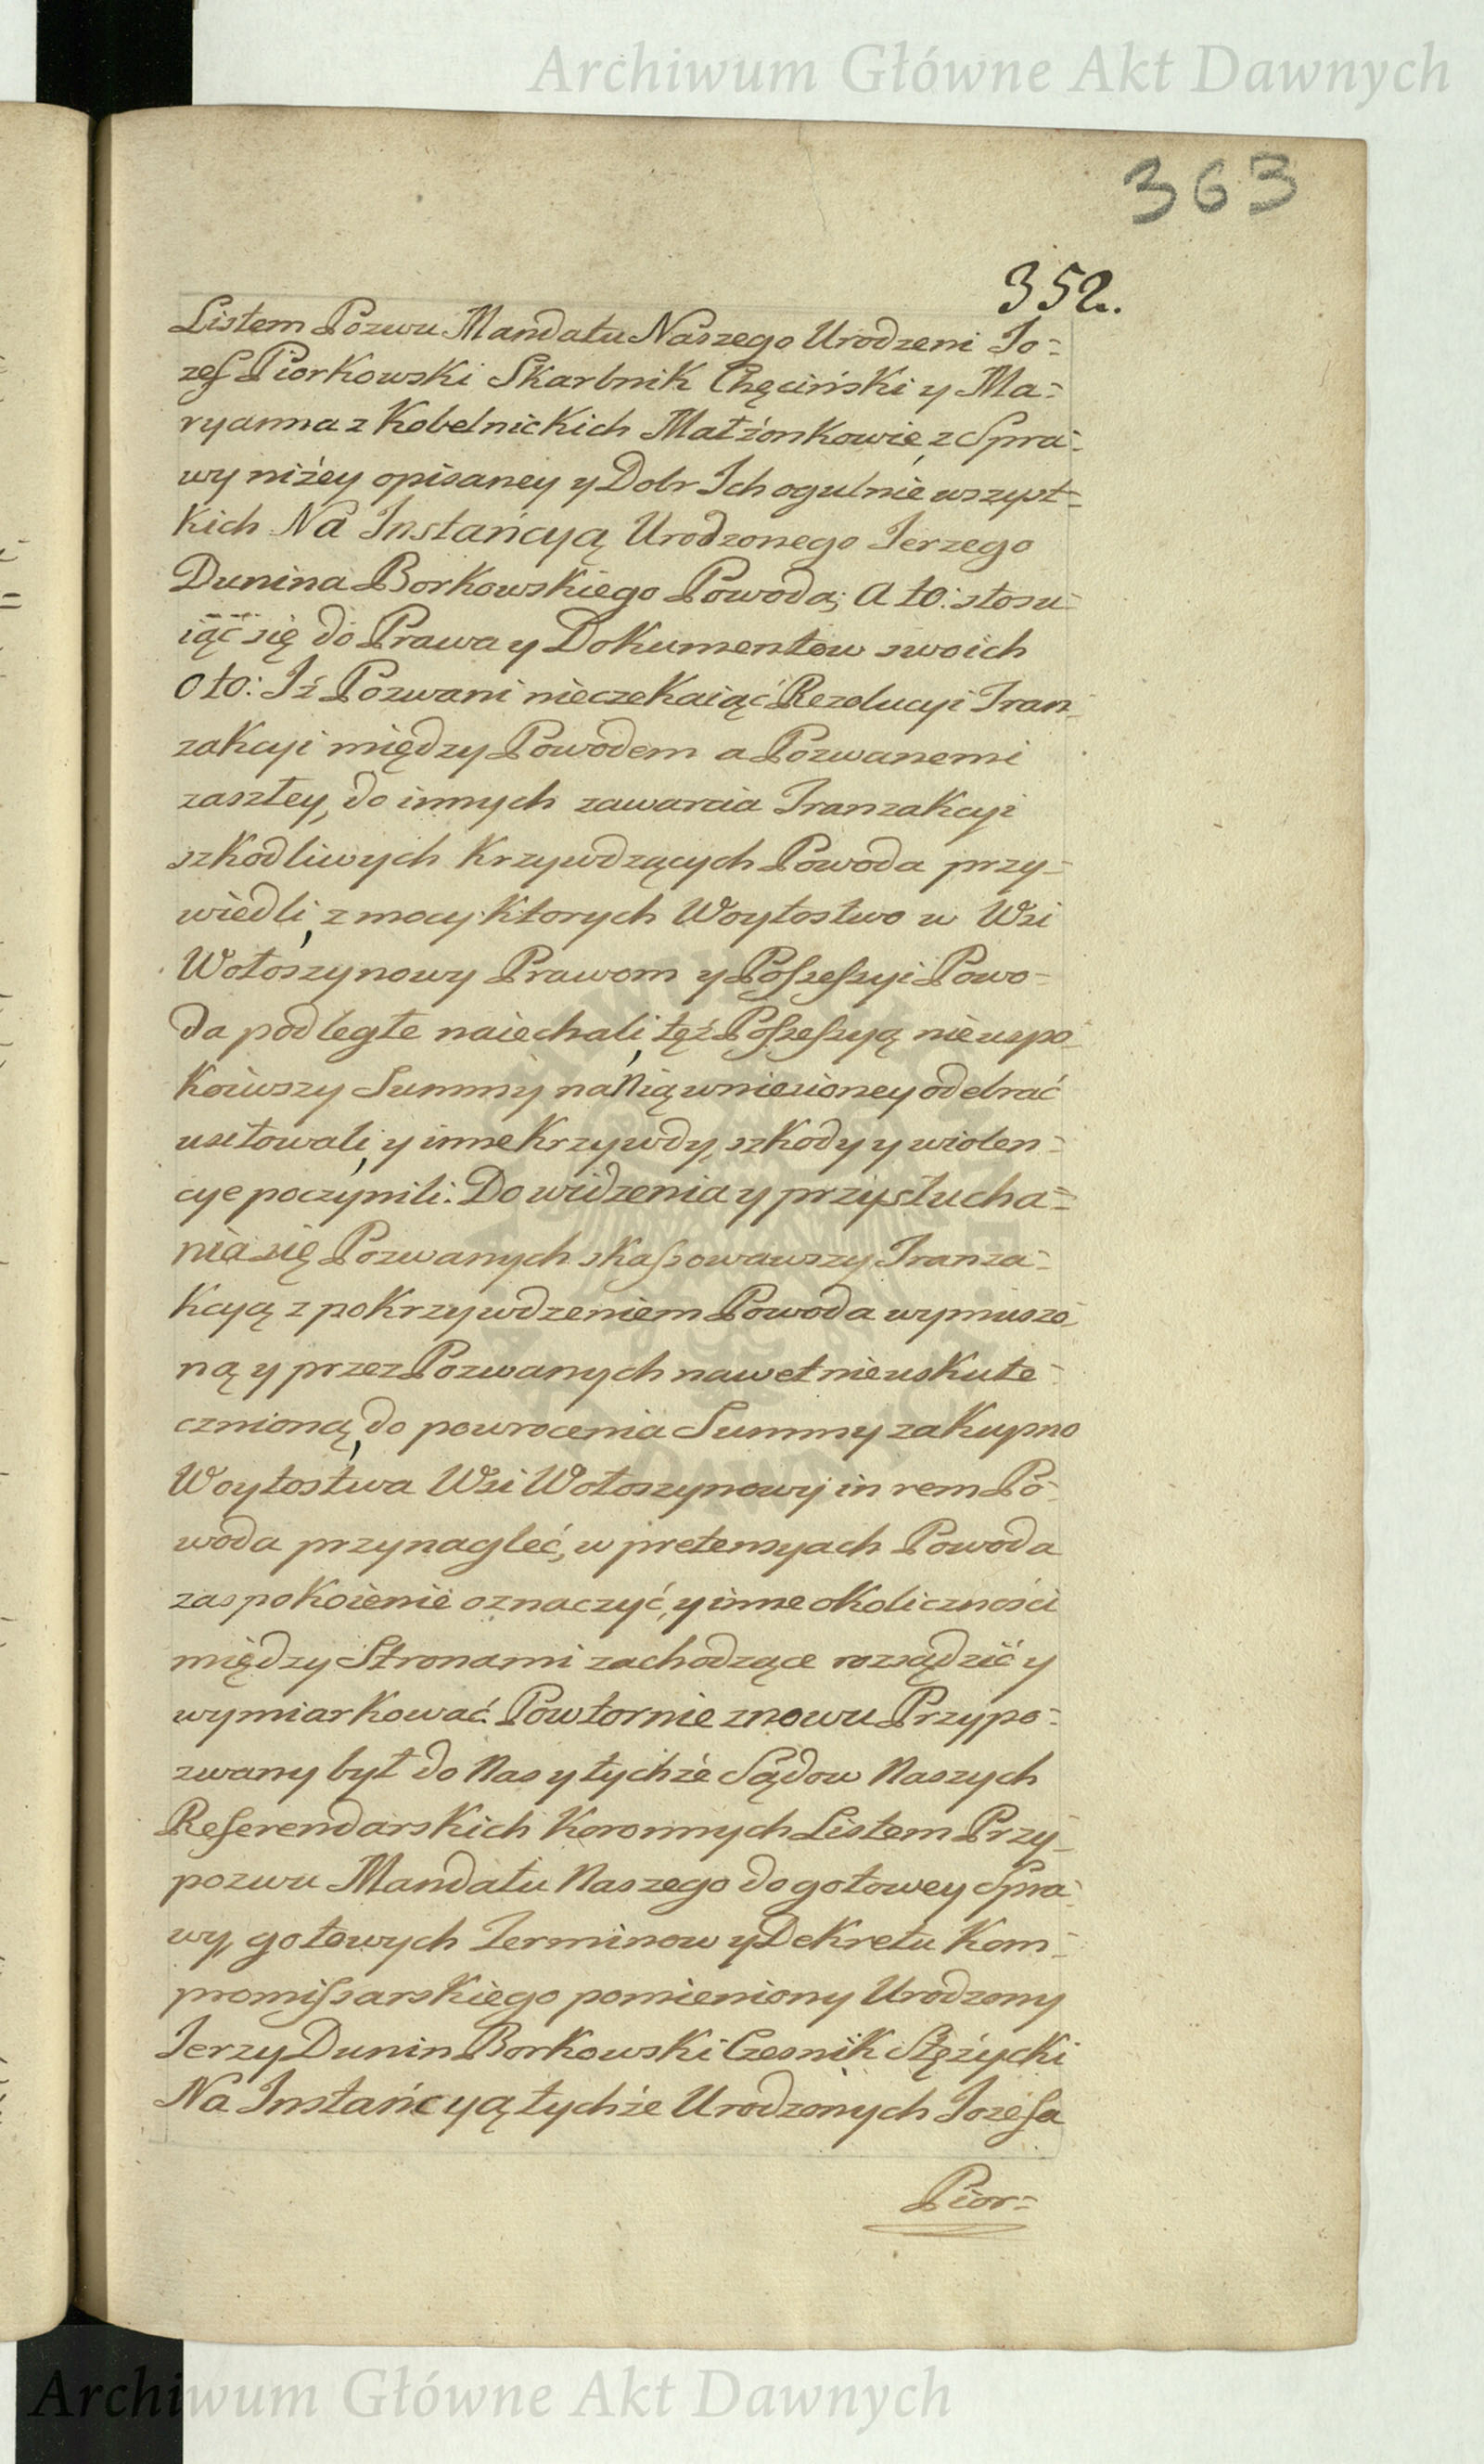 Archiwum Główne Akt Dawnych
363
352.
Listem Pozwu Mandatu Naszego Urodzeni Jo=
zef Piorkowski Skarbnik Chęciński y Ma=
ryanna z Kobelnickich Małżonkowie, z Spra=
wy niżey opisaney y Dobr Ich ogulnie wszyst=
kich Na Instańcyą Urodzonego Jerzego
Dunina Borkowskiego Powoda; a to: stosu=
iąc się do Prawa y Dokumentow swoich
Oto: Iż Pozwani nieczekaiąc Rezolucyi Tran=
zakcyi między Powodem a Pozwanemi
zaszłey, do innych zawarcia Tranzakcyi
szkodliwych krzywdzących Powoda przy=
wiedli, z mocy ktorych Woytostwo w Wsi
Wołoszynowy Prawom y Poſseſsyi Powo=
da podległe naiechali, tęż Poſseſsyą nieuspo=
koiwszy Summy na Nią wniesioney odebrać
usiłowali, y inne krzywdy, szkody y wiolen=
cye poczynili: Do widzenia y przysłucha=
nia się Pozwanych skaſsowawszy Tranza=
kcyą z pokrzywdzeniem Powoda wymuszo=
ną y przez Pozwanych nawet nieuskute=
cznioną, do powrocenia Summy za kupno
Woytostwa Wsi Wołoszynowy in rem Po=
woda przynagleć, w pretensyach Powoda
zaspokoienie oznaczyć, y inne okoliczności
między Stronami zachodzące rozsądzić y
wymiarkować. Powtornie znowu Przypo=
zwany był do Nas y tychże Sądow Naszych
Referendarskich Koronnych Listem Przy=
pozwu Mandatu Naszego do gotowey Spra=
wy, gotowych Terminow y Dekretu Kom=
promiſsarskiego pomieniony Urodzony
Jerzy Dunin Borkowski Czesnik Stężycki
Na Instańcyą tychże Urodzonych Jozefa
Pior=
Archiwum Główne Akt Dawnych